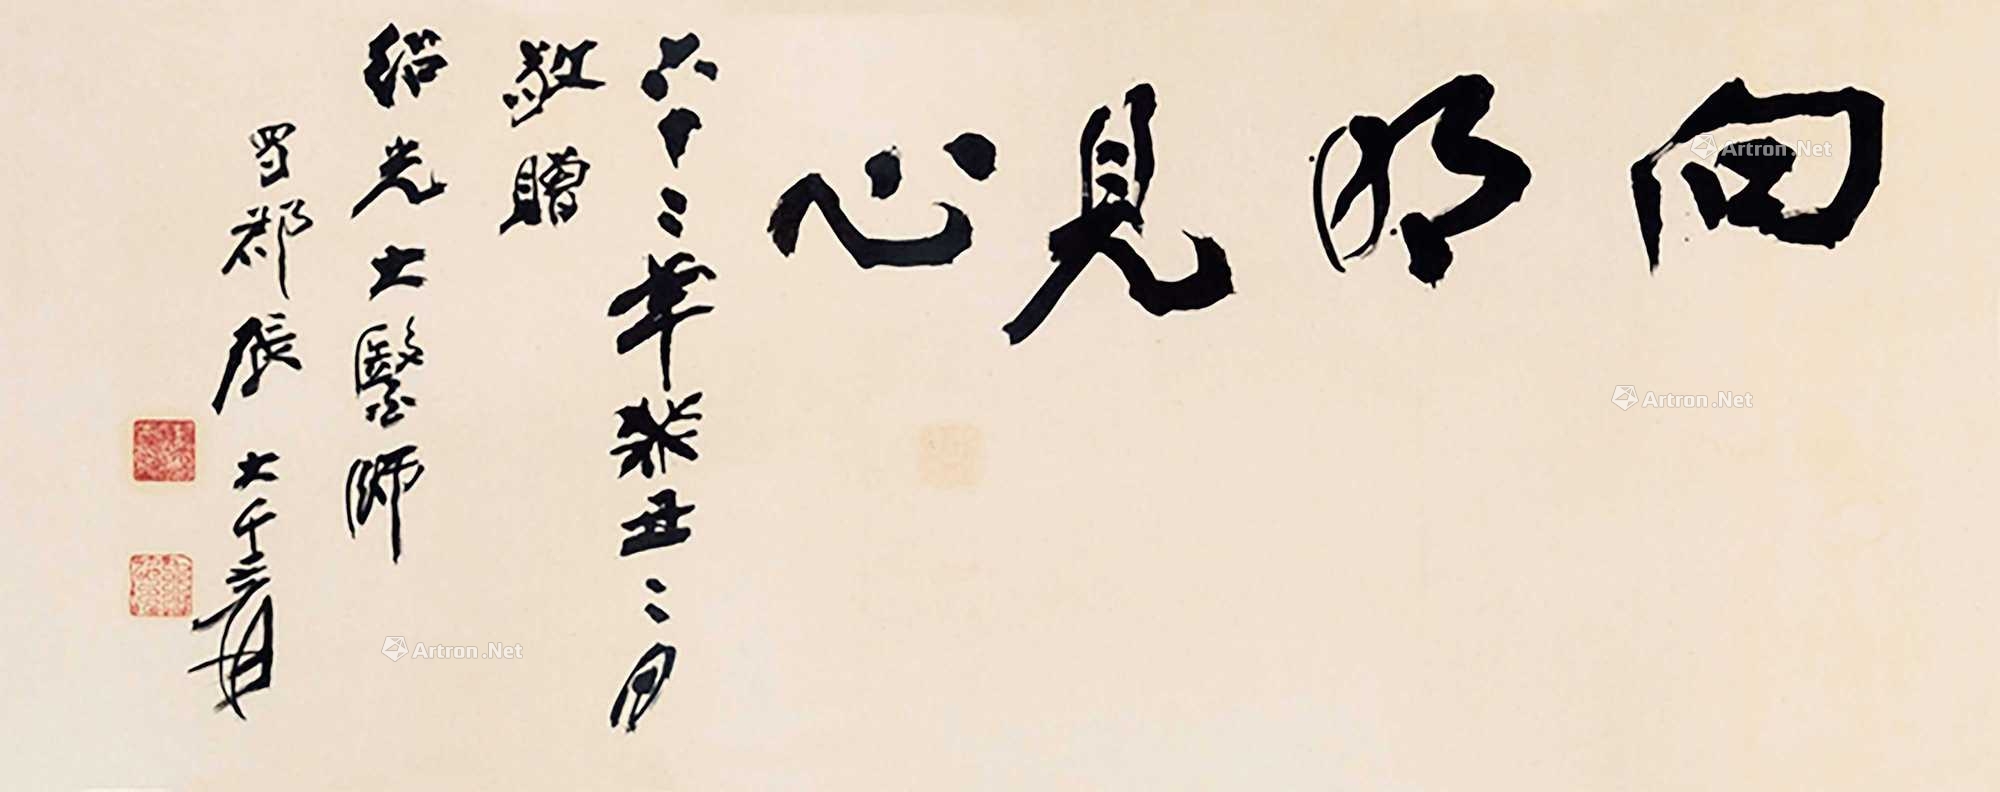 向明見心
六十二年癸丑二月
敬贈
紹光大醫師
蜀郡張大千爰
Artron.Net
Artron.Net
Artron.Net